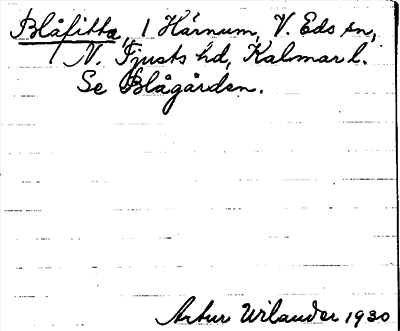 Blåfitta, 1 Härnum, V. Eds sn,
N. Tjusts hd, Kalmar l.
Se Blågården.
Artur Wilander 1930